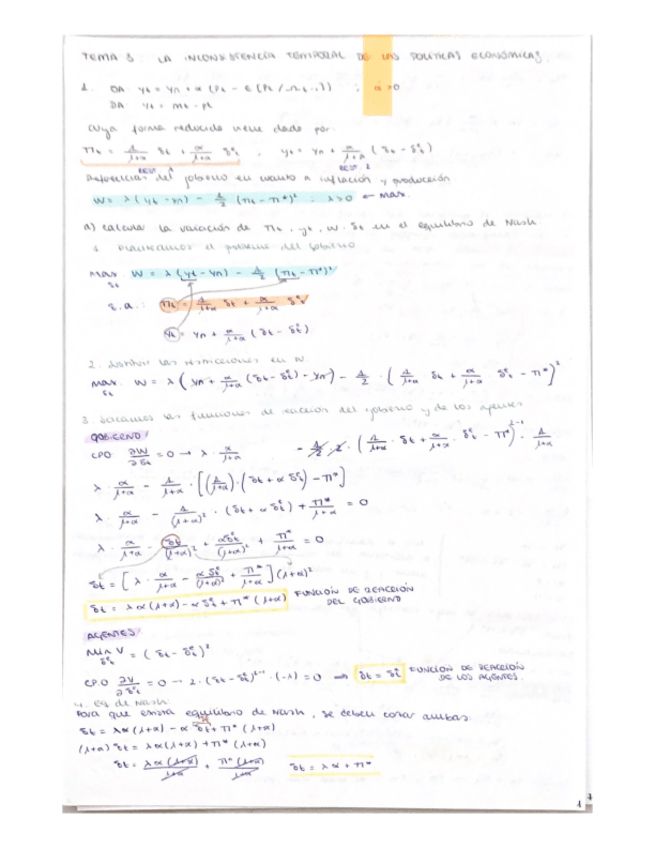 TEMA 3: LA INCONSISTENCIA TEMPORAL DE LAS POLÍTICAS ECONÓMICAS.
1. OA yt = yn + α (Pt - E (Pt / Ωt-1)) ; α > 0
DA yt = mt - pt
cuya forma reducida viene dada por:
πt = 1/(1+α) δt + α/(1+α) δt^e , yt = yn + α/(1+α) (δt - δt^e)
REST 1 REST 2
Preferencias del gobierno en cuanto a inflación y producción
W = λ (yt - yn) - 1/2 (πt - π*)² ; λ > 0 ← MAX.
a) calcular la variación de πt, yt, W, δt en el equilibrio de Nash
1. Planteamos el problema del gobierno
max δt W = λ (yt - yn) - 1/2 (πt - π*)²
s.a.: πt = 1/(1+α) δt + α/(1+α) δt^e
yt = yn + α/(1+α) (δt - δt^e)
2. sustituir las restricciones en W
max δt W = λ (yn + α/(1+α) (δt - δt^e) - yn) - 1/2 · (1/(1+α) δt + α/(1+α) δt^e - π*)²
3. Sacamos las funciones de reacción del gobierno y de los agentes
GOBIERNO
CPO ∂W/∂δt = 0 → λ · α/(1+α) - 1/2 · 2 · (1/(1+α) · δt + α/(1+α) · δt^e - π*)^2-1 · 1/(1+α)
λ · α/(1+α) - 1/(1+α) · [(1/(1+α)) · (δt + α δt^e) - π*]
λ · α/(1+α) - 1/(1+α)² · (δt + α δt^e) + π*/(1+α) = 0
λ · α/(1+α) - δt/(1+α)² + αδt^e/(1+α)² + π*/(1+α) = 0
δt = [λ · α/(1+α) - α δt^e/(1+α)² + π*/(1+α)] (1+α)²
δt = λ α (1+α) - α δt^e + π* (1+α) FUNCIÓN DE REACCIÓN
DEL GOBIERNO
AGENTES
Min δt^e V = (δt - δt^e)²
CPO ∂V/∂δt^e = 0 → 2 · (δt - δt^e)^2-1 · (-1) = 0 ⇒ δt = δt^e FUNCIÓN DE REACCIÓN
DE LOS AGENTES.
4. Eq de Nash
Para que exista equilibrio de Nash, se deben cortar ambas:
δt = λα (1+α) - α δt + π* (1+α)
(1+α) δt = λ α (1+α) + π* (1+α)
δt = λ α (1+α)/(1+α) + π* (1+α)/(1+α) δt = λ α + π*
1